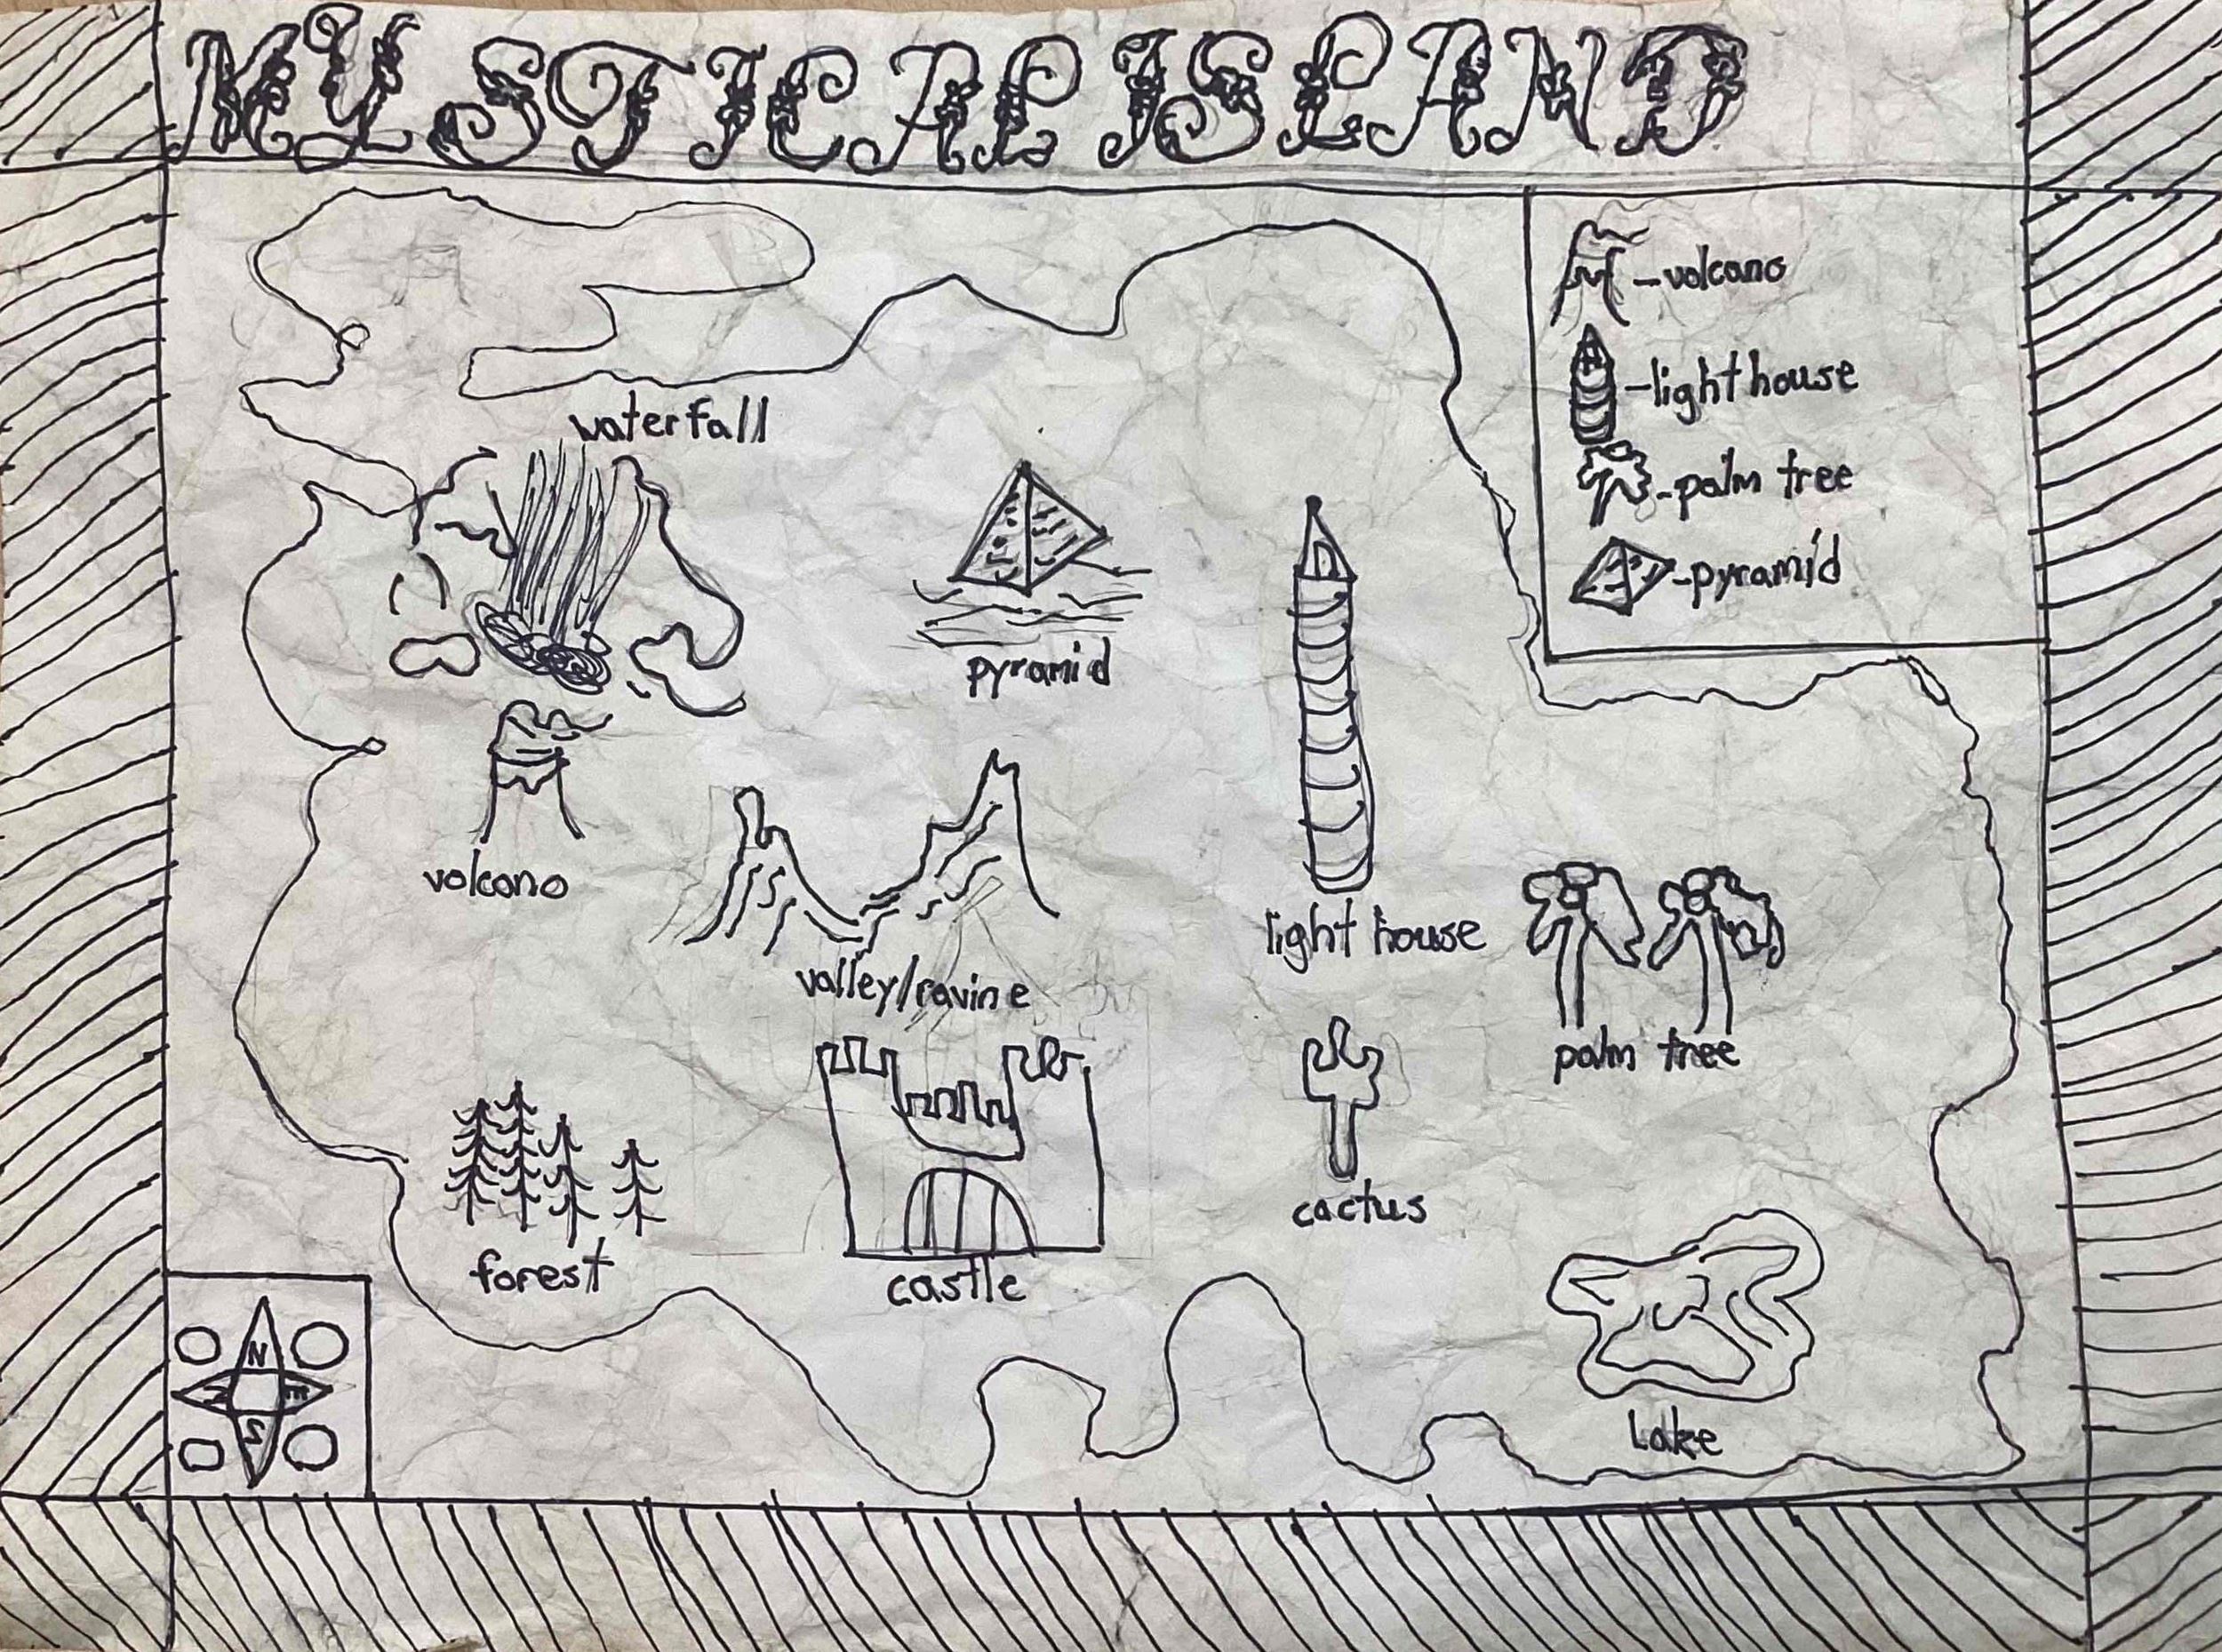 MYSTICAL ISLAND
-volcano
-light house
-palm tree
-pyramid
waterfall
pyramid
volcano
light house
valley/ravine
palm tree
cactus
forest
castle
Lake
N
E
S